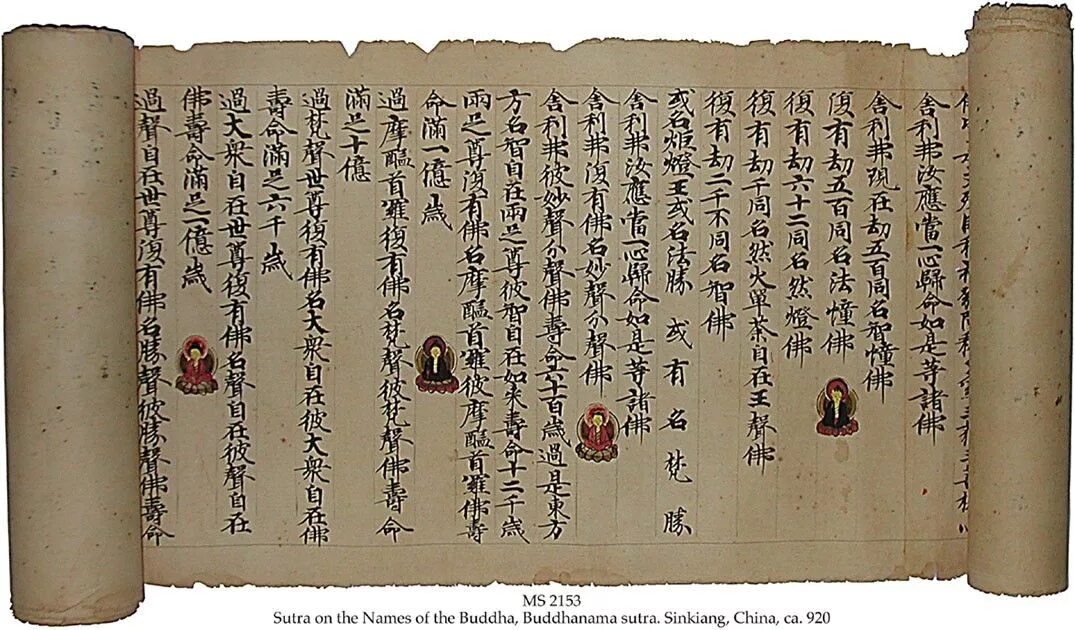 舍利弗汝應當一心歸命如是等諸佛
舍利弗現在劫五百同名智幢佛
復有劫五百同名法幢佛
復有劫六十二同名然燈佛
復有劫千同名然火單荼自在王聲佛
復有劫二千不同名智佛
或名炬燈王或名法勝 或有名梵勝
舍利弗汝應當一心歸命如是等諸佛
舍利弗復有佛名妙聲分聲佛
舍利弗彼妙聲分聲佛壽命六十百歲過是東方
方名智自在兩足尊彼智自在如来壽命十二千歲
兩足尊復有佛名摩醯首羅彼摩醯首羅佛壽
命滿一億歲
過摩醯首羅復有佛名梵聲彼梵聲佛壽命
滿足十億
過梵聲世尊復有佛名大衆自在彼大衆自在佛
壽命滿足六千歲
過大衆自在世尊復有佛名聲自在彼聲自在
佛壽命滿足一億歲
過聲自在世尊復有佛名勝聲彼勝聲佛壽命
MS 2153
Sutra on the Names of the Buddha, Buddhanama sutra. Sinkiang, China, ca. 920